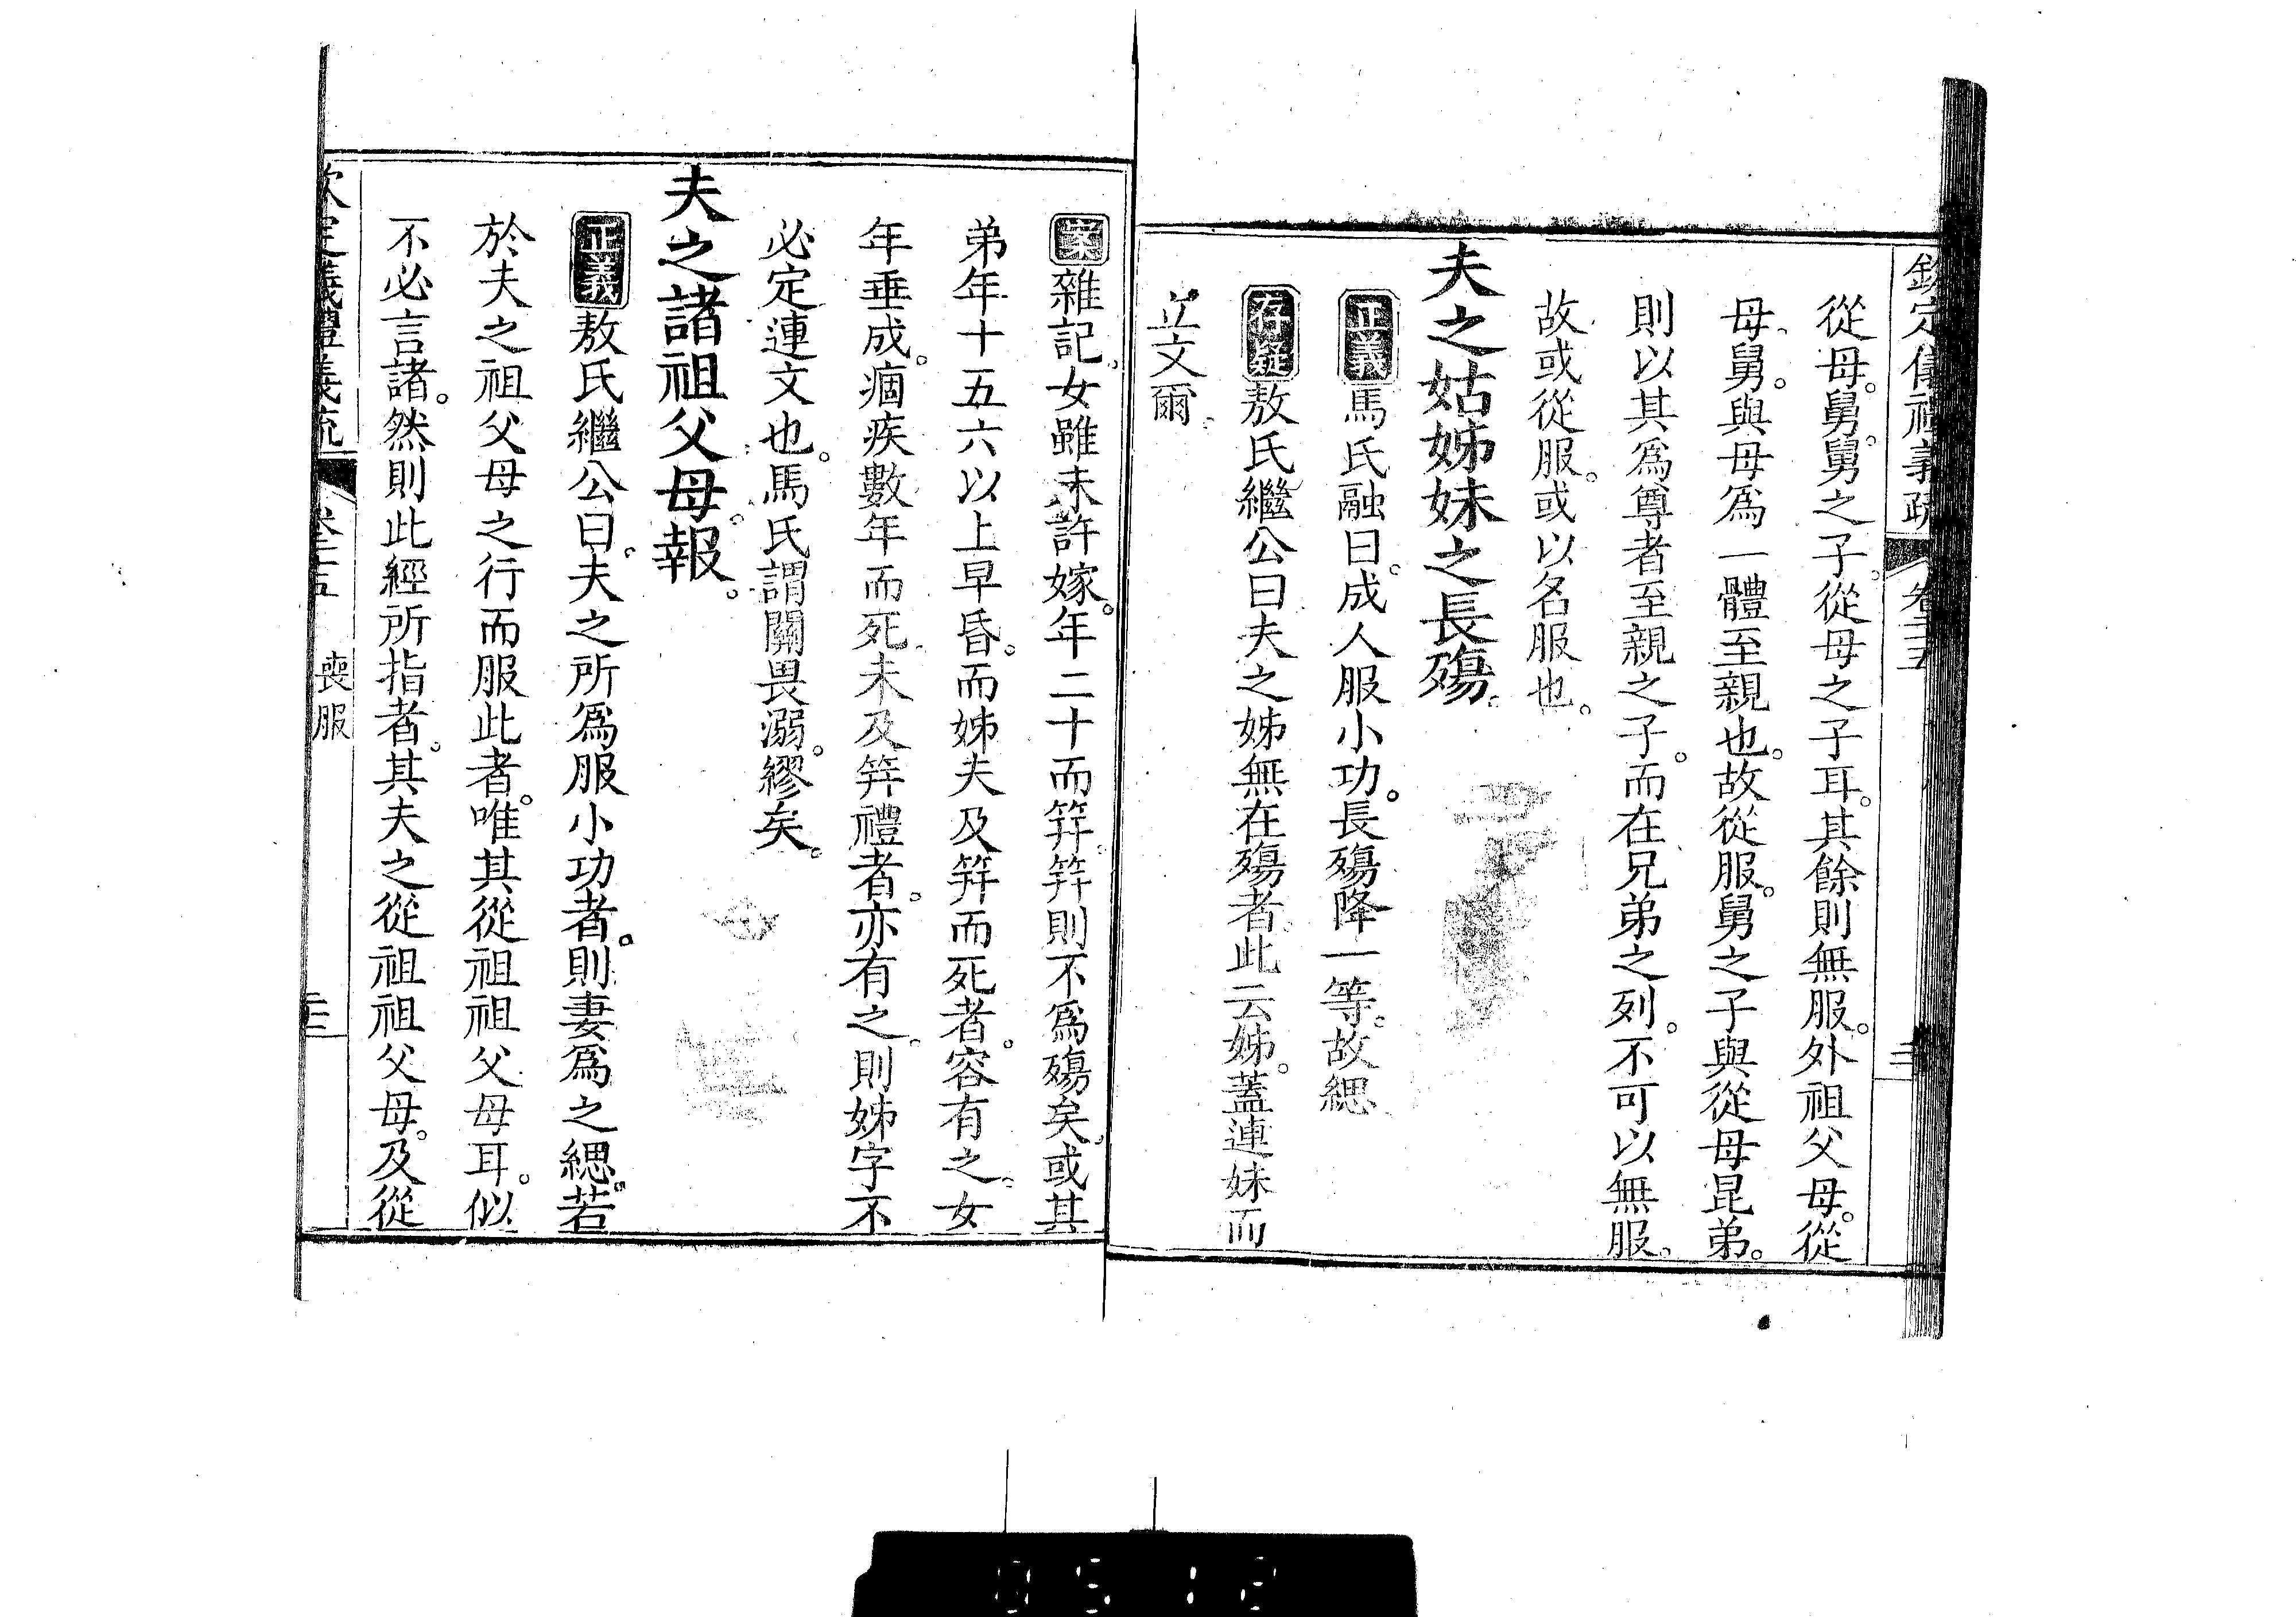 欽定儀禮義疏 卷二十五
從母。舅。舅之子。從母之子耳。其餘則無服。外祖父母。從
母。舅。與母為一體至親也。故從服。舅之子與從母昆弟。
則以其為尊者至親之子。而在兄弟之列。不可以無服。
故或從服。或以名服也。
夫之姑姊妹之長殤。
正義馬氏融曰。成人服小功。長殤降一等。故緦
存疑敖氏繼公曰夫之姊無在殤者。此云姊。蓋連妹而
並文爾。
案雜記。女雖未許嫁。年二十而笄。笄則不為殤矣。或其
弟年十五六以上早昏。而姊夫及笄而死者。容有之。女
年垂成。痼疾數年而死。未及笄禮者。亦有之。則姊字不
必定連文也。馬氏謂關畏溺。繆矣。
夫之諸祖父母。報。
正義敖氏繼公曰。夫之所為服小功者。則妻為之緦。若
於夫之祖父母之行而服此者。唯其從祖祖父母耳。似
不必言諸。然則此經所指者。其夫之從祖祖父母。及從
欽定義禮義疏 卷二十五 喪服
0512